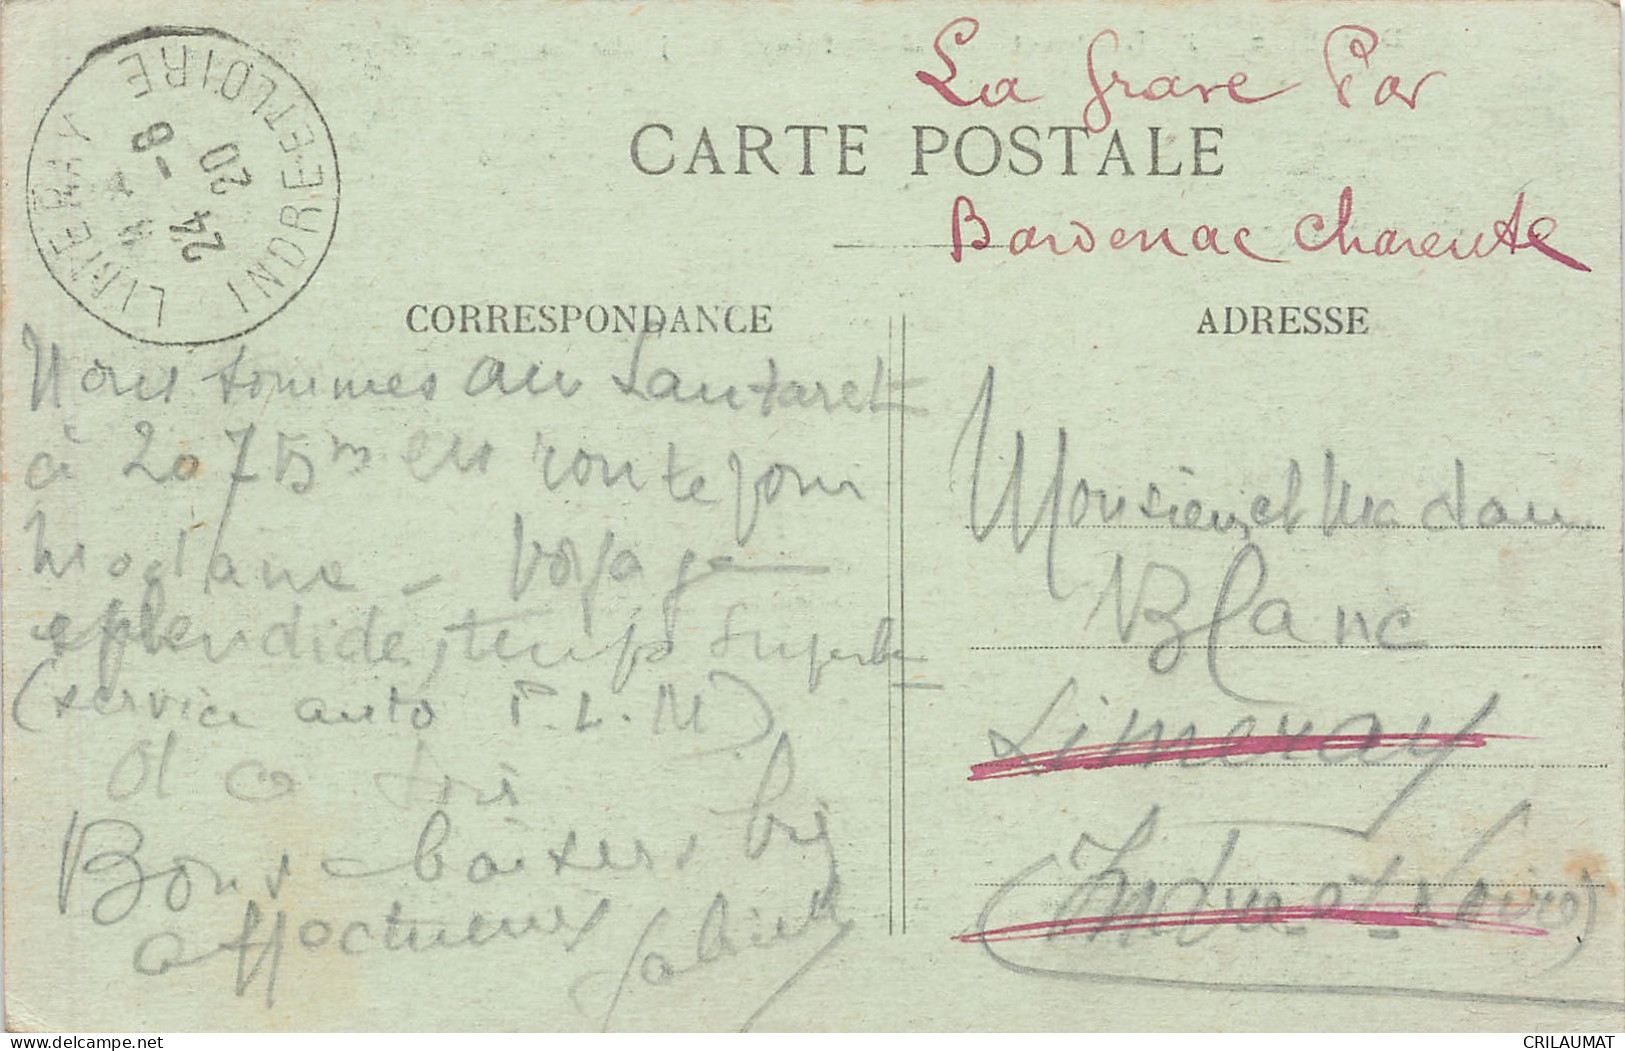 La Grave Par
CARTE POSTALE
Bardenac Charente
LIMERAY
INDRE-ET-LOIRE
8 -
24
20
CORRESPONDANCE
ADRESSE
Nous sommes au Lautaret
à 2075m en route pour
Modane - Voyage
splendide, temps superbe
(service auto P.L.M)
Bons baisers bien
affectueux
Monsieur et Madame
Blanc
Limeray
(Indre et Loire)
CRILAUMAT